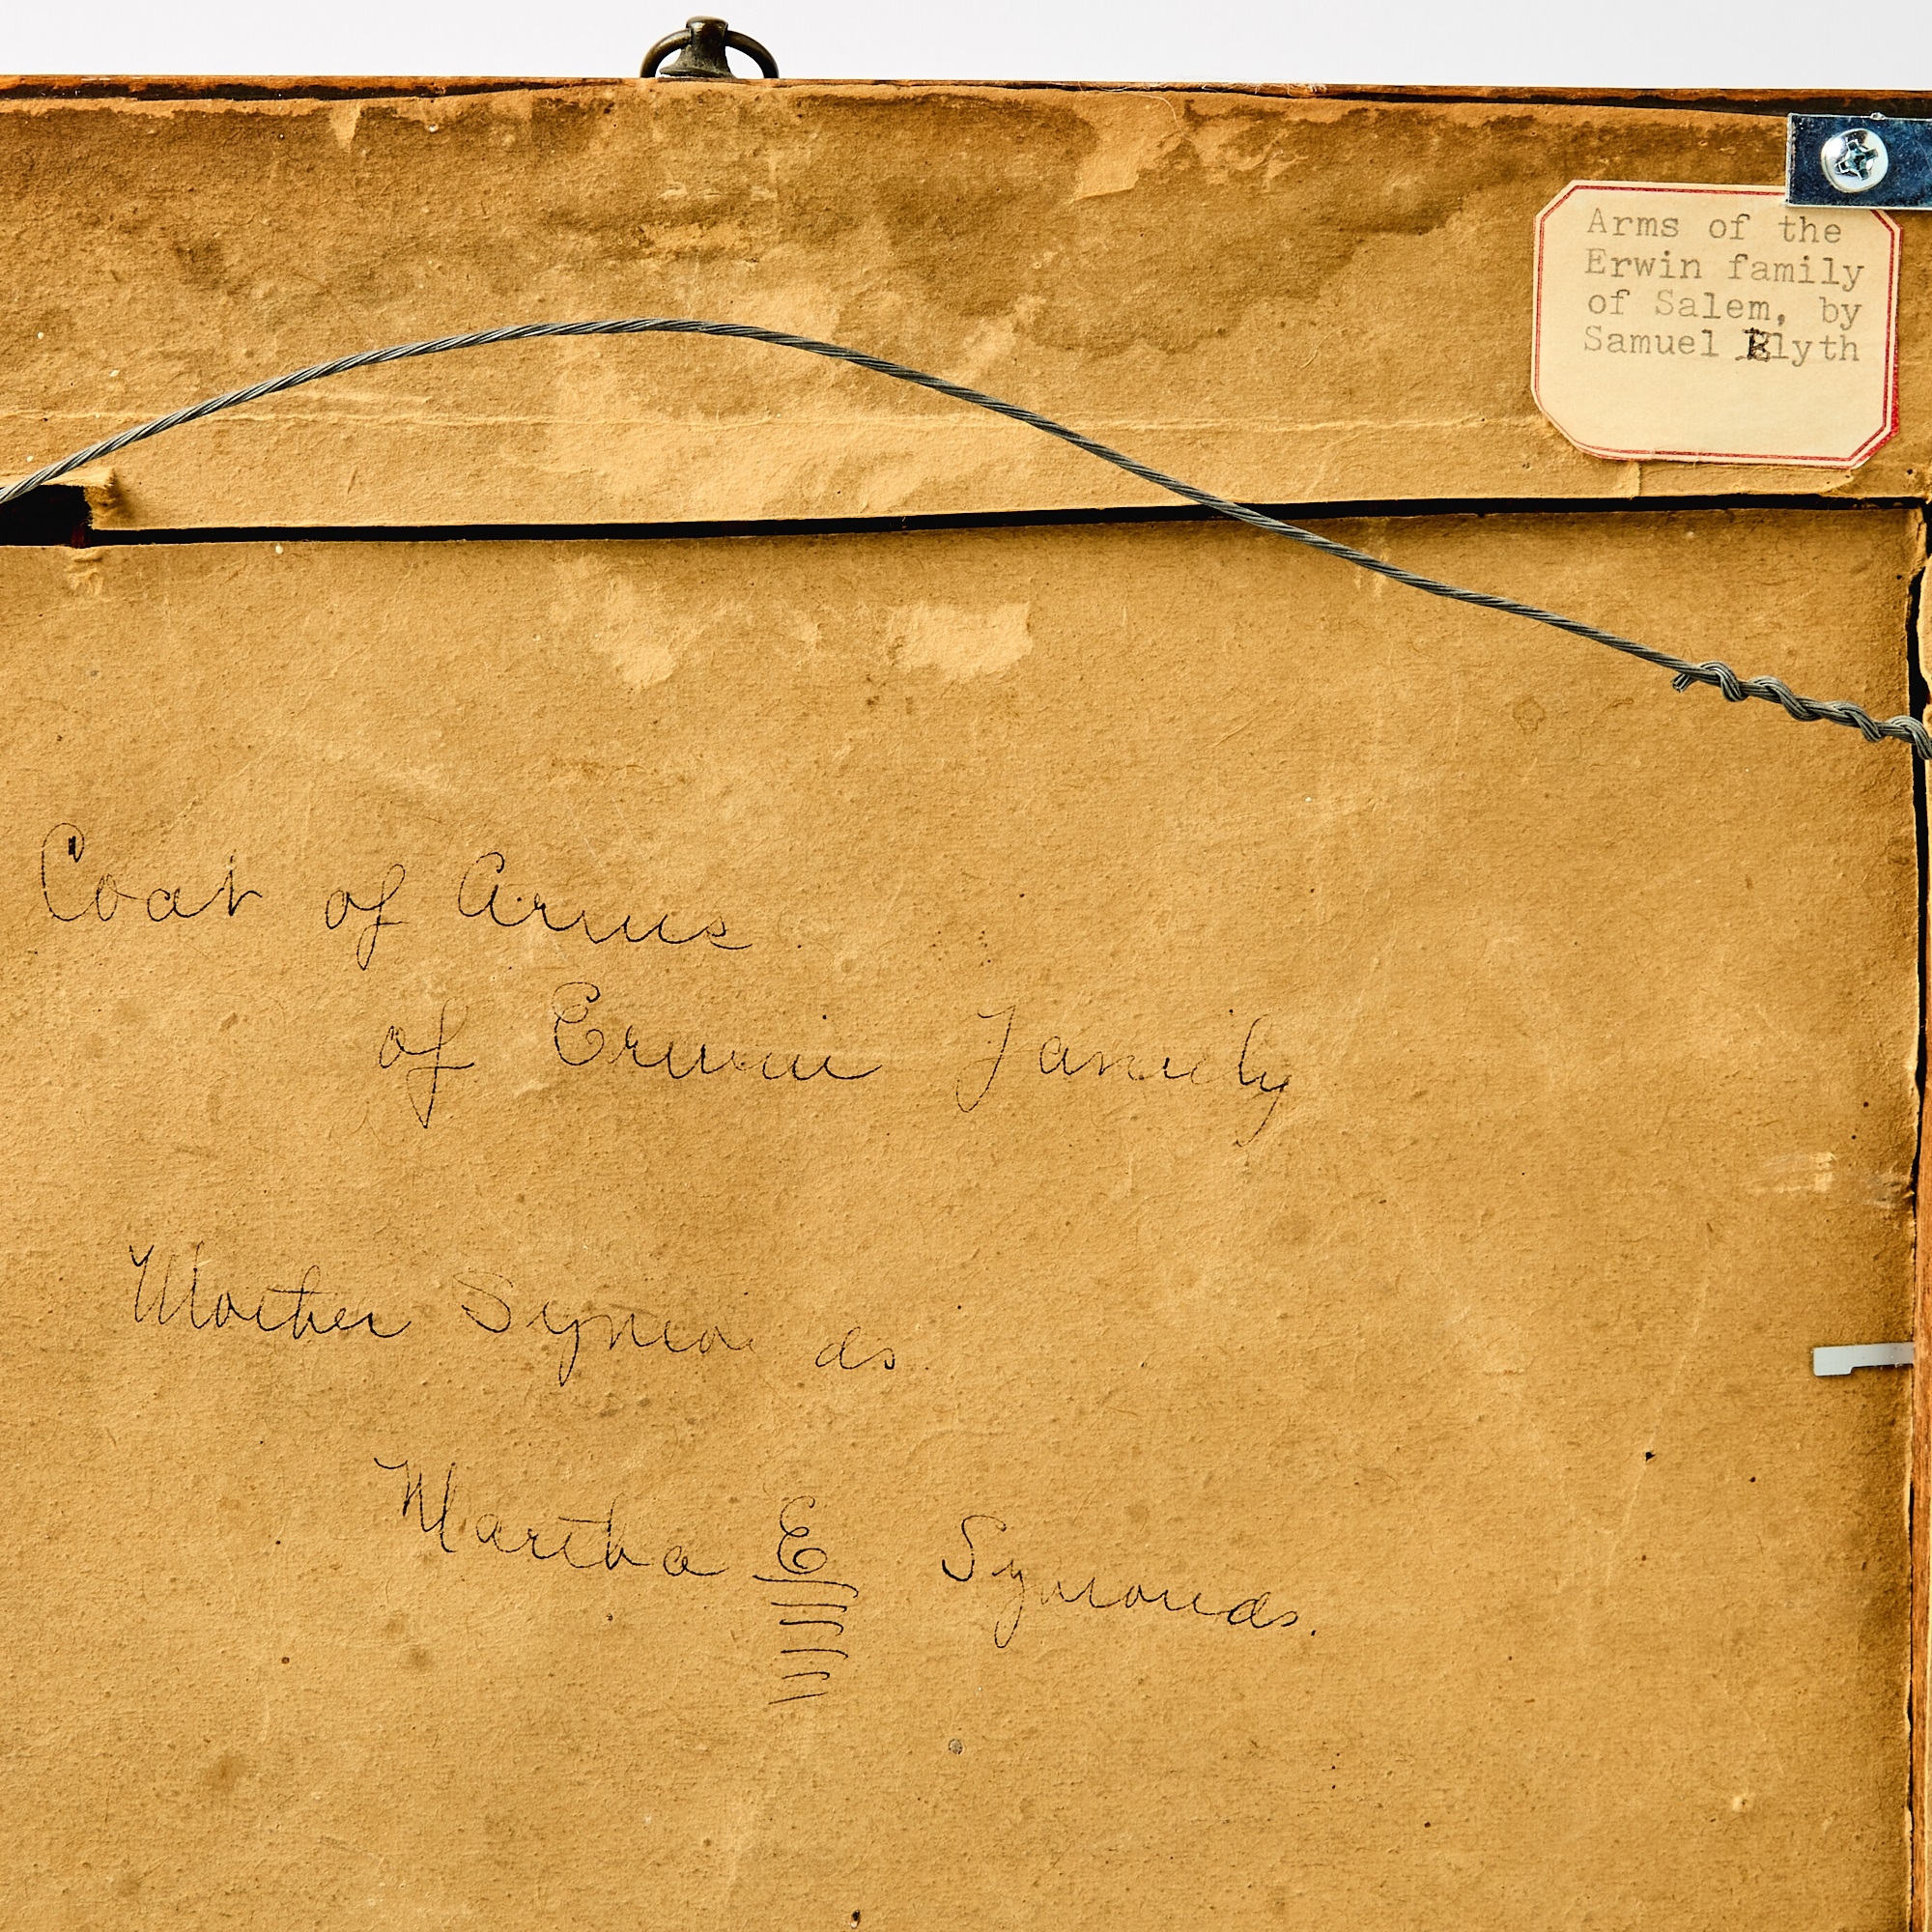 Arms of the
Erwin family
of Salem, by
Samuel Blyth
Coat of Arms
of Erwin Family
Mother Symonds
Martha E Symonds.